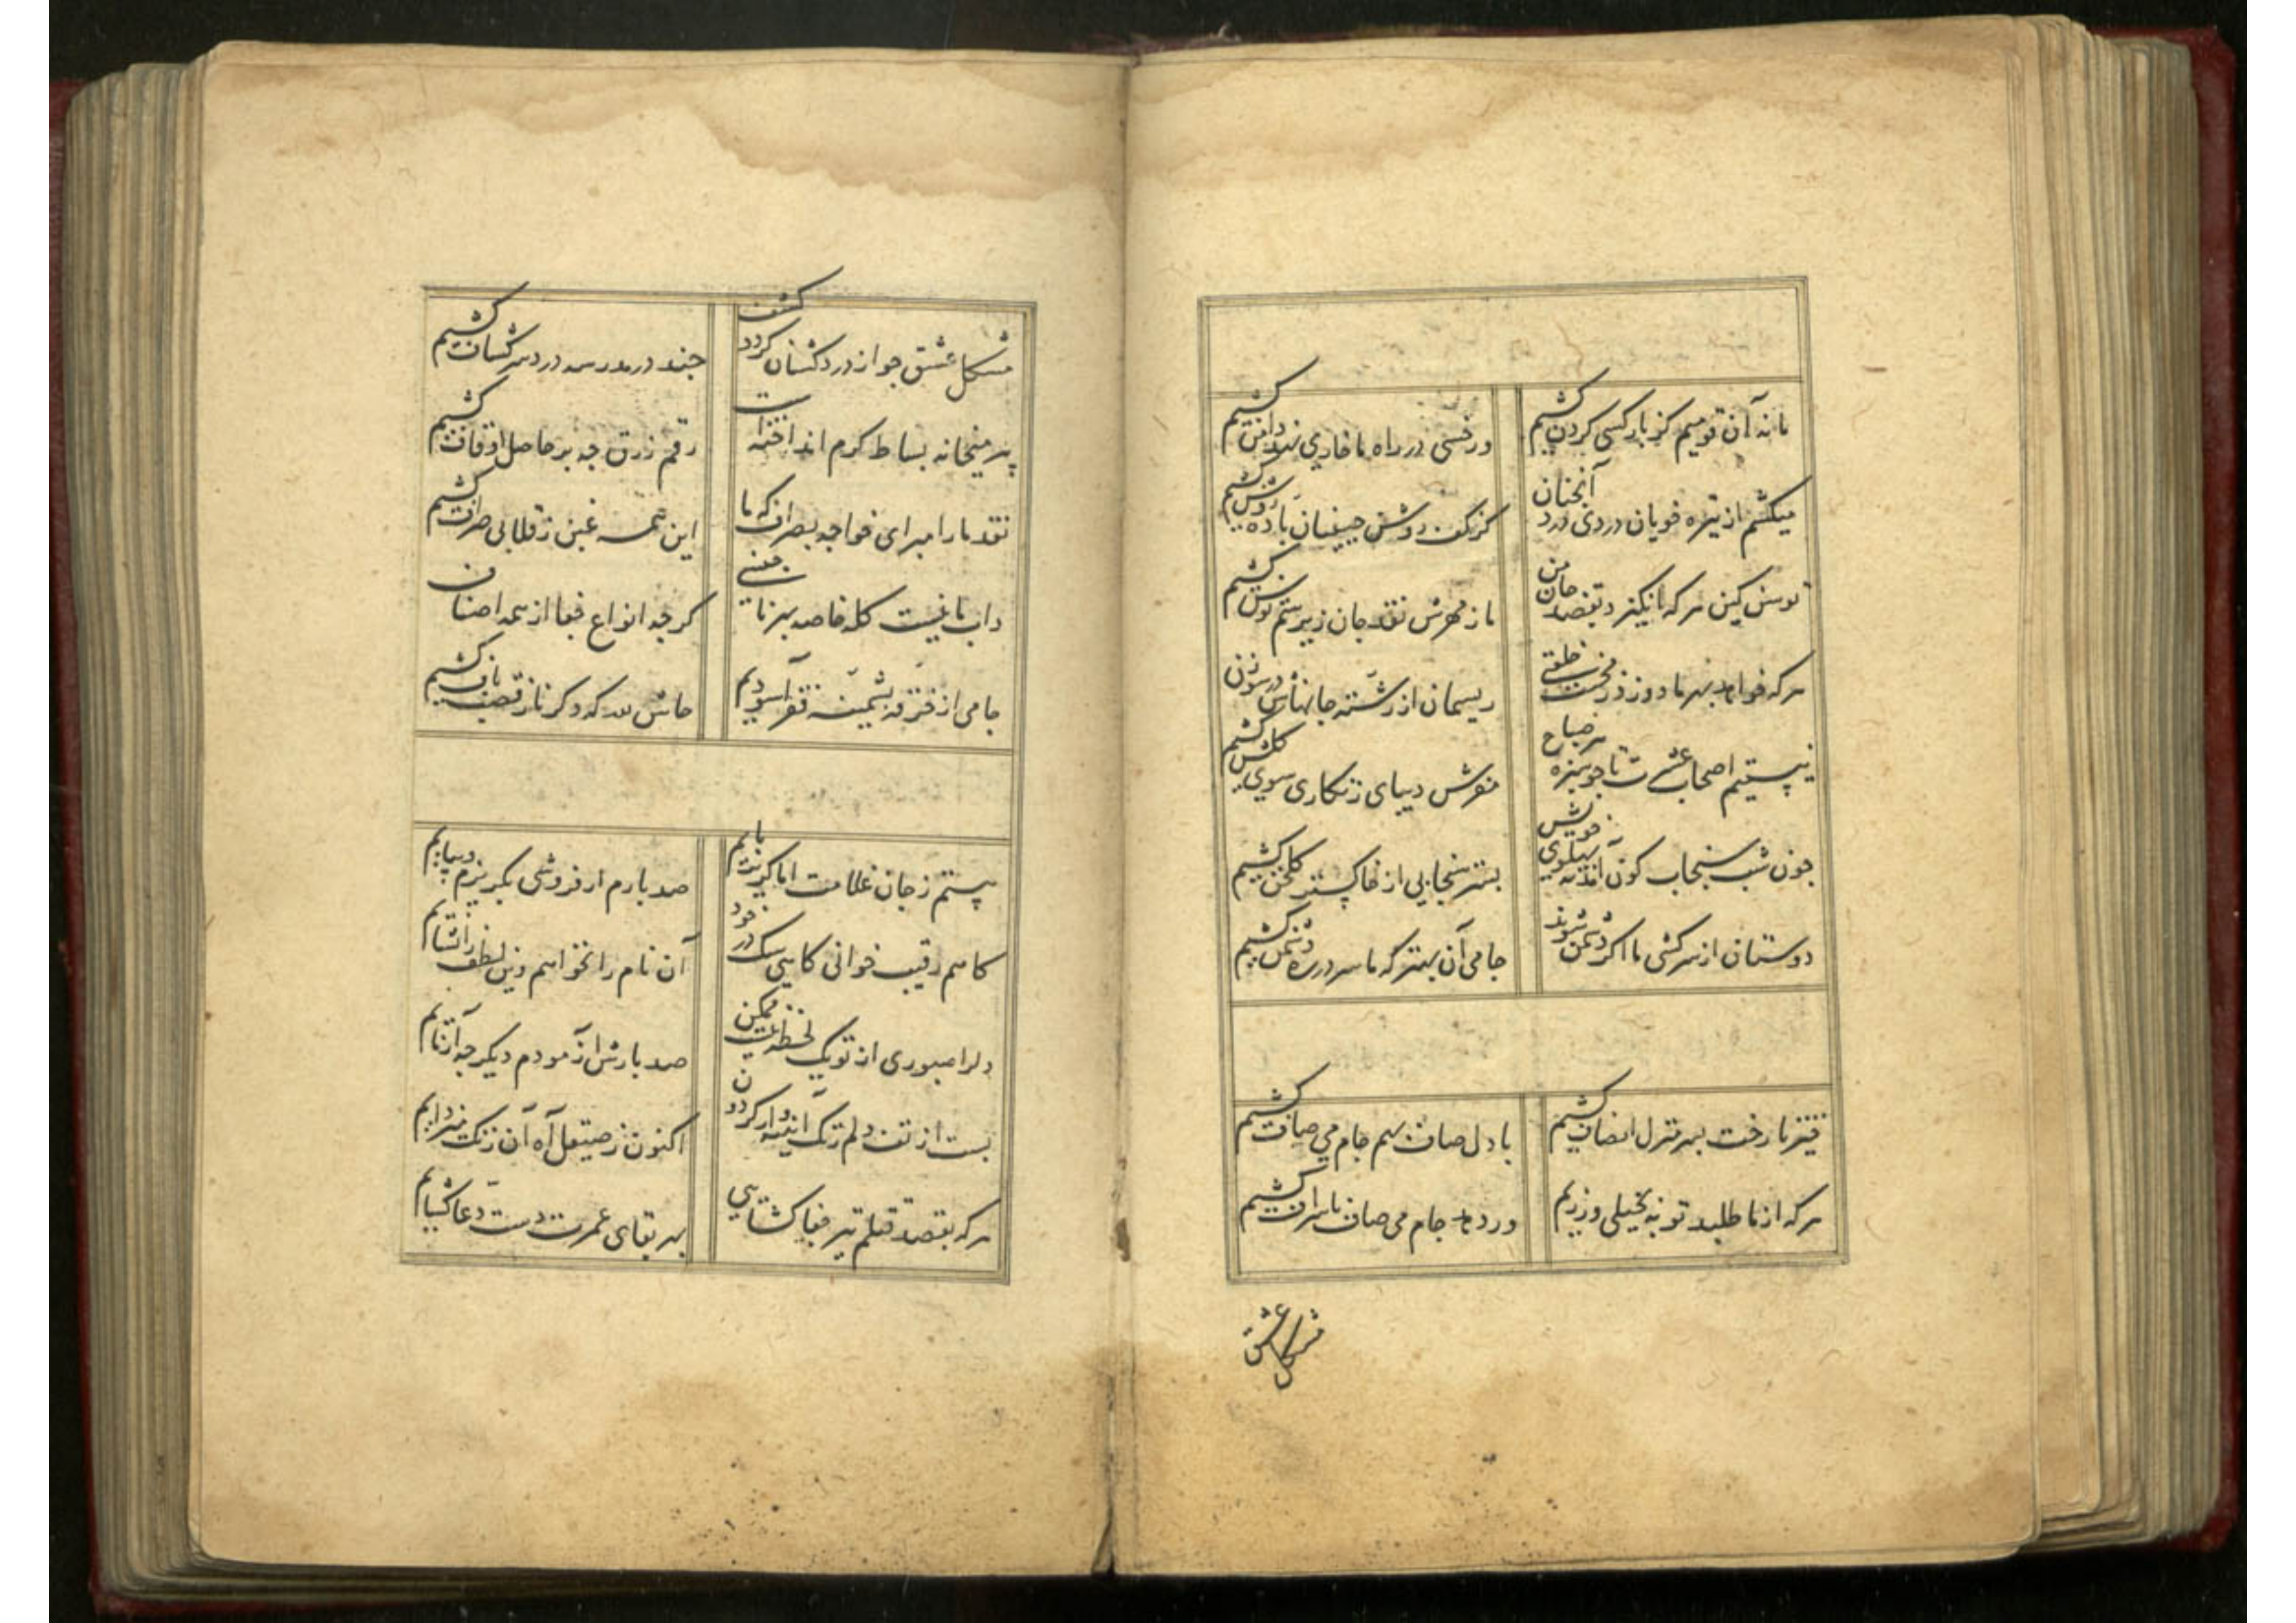 ما نه آن قومیم کز بار کسی کردن کشیم
ور خسی در راه ما خاری نهد دامن کشیم
میکشم از تیره خویان دردی درد آنجنان
کز کف روشن جبینان باده روشن کشیم
توسن کین هر که انکیزد بقصد جان من
ما ز مهرش نقد جان زیر سم توسن کشیم
هر که خواهد بهر ما دوزد ز محنت خلعتی
ریسمان از رشته جانهاش در سوزن کشیم
نیستیم اصحاب عشرت تا جو سبزه هر صباح
مفرش دیبای زنکاری سوی کلشن کشیم
جون شب سنجاب کون آید به پهلوی خویش
بستر سنجابی از خاکستر کلخن کشیم
دوستان از سرکشی ما اکر دشمن شوند
جامی آن بهتر که ما سر در ره دشمن کشیم
خیز تا رخت بسر منزل انصاف کشیم
با دل صاف بهم جام می صاف کشیم
هر که از ما طلبد توبه بخیلی ورزیم
ور دهد جام می صاف باسراف کشیم
مشکل عشق
مشکل عشق جو از درد کشان کردد کشف
جند در مدرسه درد سر کشاف کشیم
پیر میخانه بساط کرم انداخته است
رقم زرق جه بر حاصل اوقاف کشیم
نقد ما را مبر ای خواجه بصراف که ما
این همه غبن ز قلابی صراف کشیم
داب ما نیست کله خاصه ببر ناجنسی
کرجه انواع جفا از همه اصناف
جامی از خرقه پشمینه فقر آسودیم
حاش لله که دکر ناز قصب باف کشیم
پیستم ز جان غلامت اما کریزپایم
صد بارم ار فروشی بکریزم و بیایم
کاهم رقیب خوانی کاهی سک در خود
آن نام را نخواهم وین لطف را نشایم
دلرا صبوری از تو یک لحظه نیست ممکن
صد بارش آزمودم دیکر جه آزمایم
بست از تف دلم زنک آیینه وار کردون
اکنون ز صیقل آه آن زنک میزدایم
هر که بقصد قتلم تیر جفا کشایی
بهر بقای عمرت دست دعا کشایم